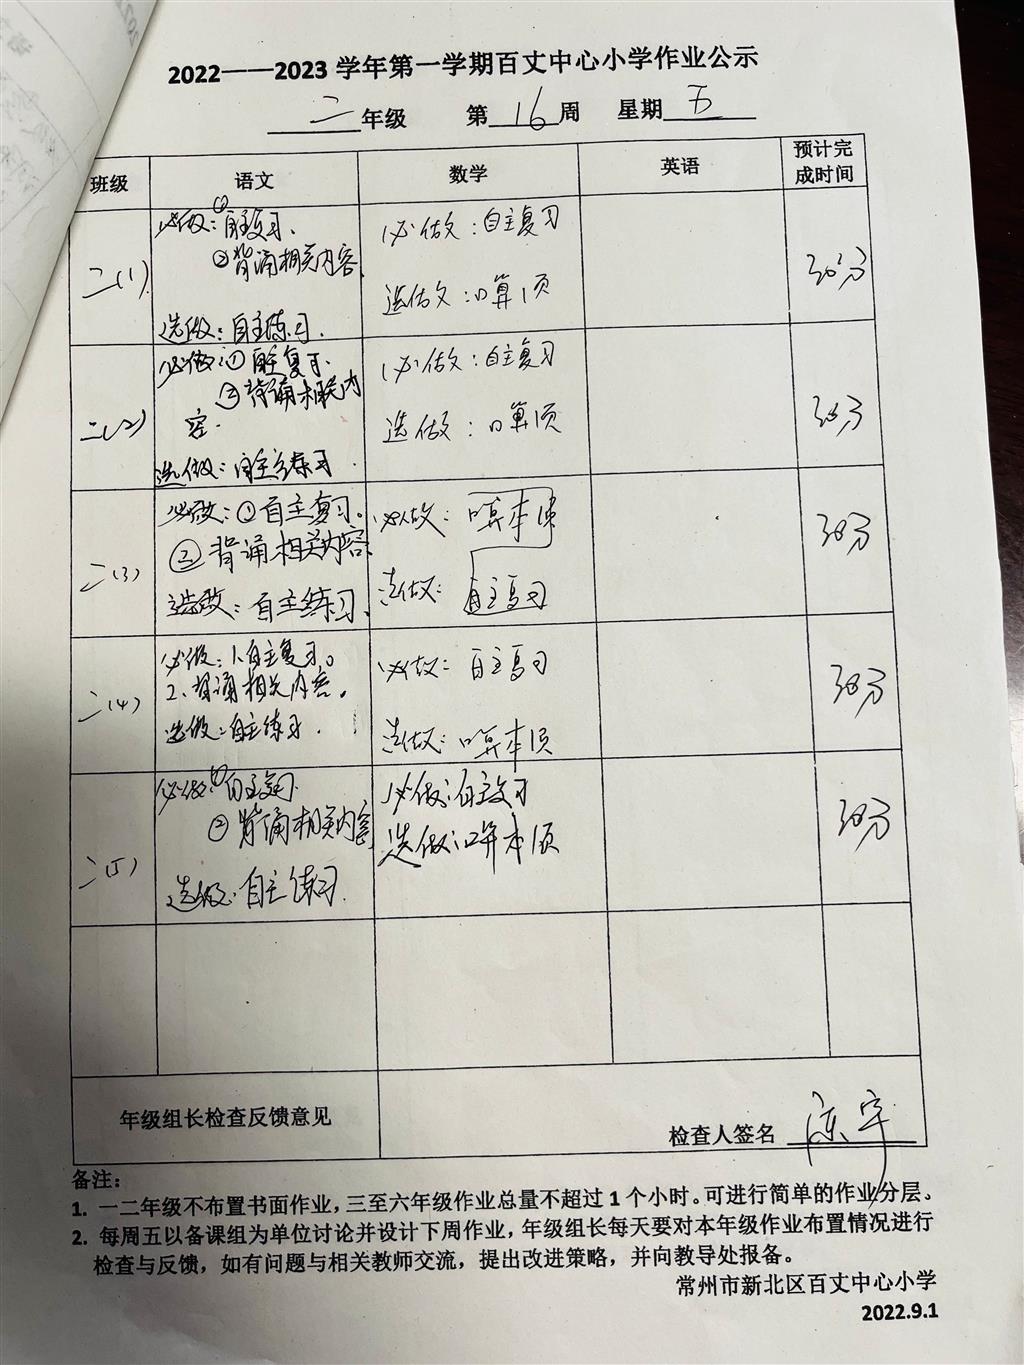 2022——2023 学年第一学期百丈中心小学作业公示
二年级 第16周 星期五
班级 语文 数学 英语 预计完成时间
二(1)
必做:①自主复习.
②背诵相关内容.
选做:自主练习.
必做:自主复习
选做:口算1页
30分
二(2)
必做:①自主复习.
②背诵相关内
容.
选做:自主练习.
必做:自主复习
选做:口算1页
30分
二(3)
必做:①自主复习。
②背诵相关内容.
选做:自主练习.
必做:口算本1页
选做:自主复习
30分
二(4)
必做:1.自主复习。
2、背诵相关内容。
选做:自主练习.
必做:自主复习
选做:口算本1页
30分
二(5)
必做:①自主复习.
②背诵相关内容
选做:自主练习.
必做:自主复习
选做:口算本1页
30分
年级组长检查反馈意见
检查人签名
备注:
1. 一二年级不布置书面作业,三至六年级作业总量不超过1个小时。可进行简单的作业分层。
2. 每周五以备课组为单位讨论并设计下周作业,年级组长每天要对本年级作业布置情况进行
检查与反馈,如有问题与相关教师交流,提出改进策略,并向教导处报备。
常州市新北区百丈中心小学
2022.9.1